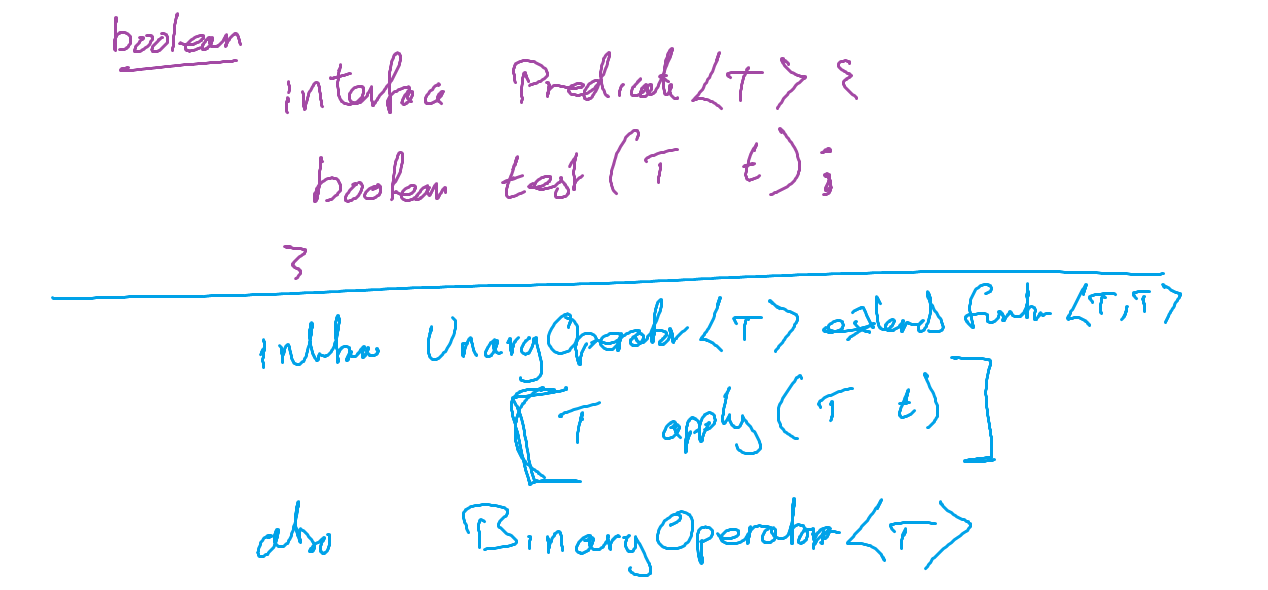 boolean
interface Predicate<T> {
boolean test(T t);
}
interface UnaryOperator<T> extends Function<T,T>
[T apply(T t)]
also BinaryOperator<T>